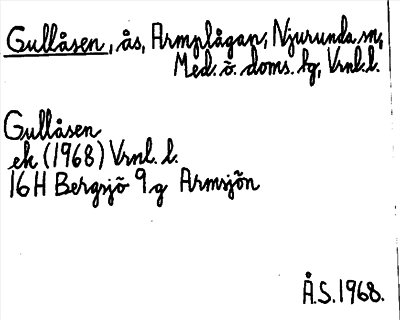 Gullåsen, ås, Armplågan, Njurunda sn,
Med. ö. doms. hg, Vrnl. l.
Gullåsen
ek (1968) Vrnl. l.
16H Bergsjö 9g Armsjön
Å.S. 1968.